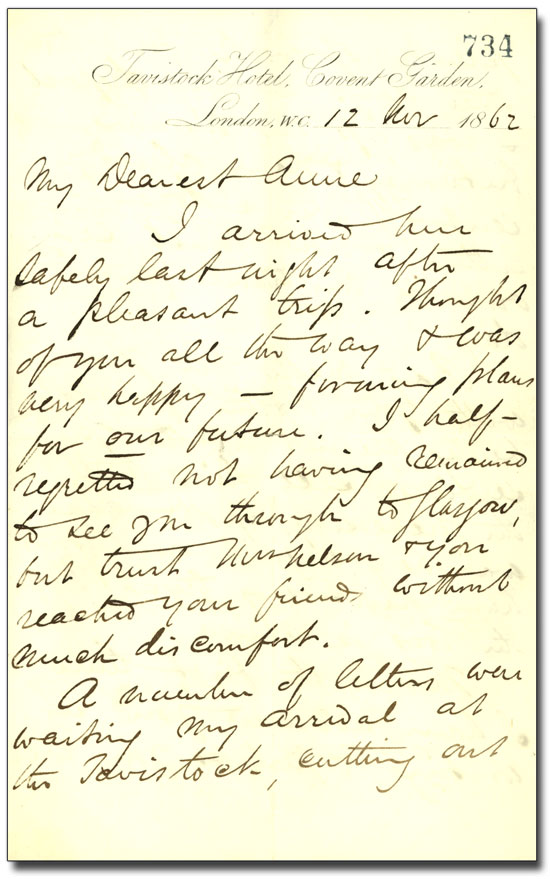 734
Tavistock Hotel, Covent Garden,
London, W.C. 12 Nov 1862
My Dearest Anne
I arrived here
safely last night after
a pleasant trip. Thought
of you all the way & was
very happy — forming plans
for our future. I half-
regretted not having remained
to see you through to Glasgow,
but trust Mrs Nelson & you
reached your friends without
much discomfort.
A number of letters were
waiting my arrival at
the Tavistock, cutting out